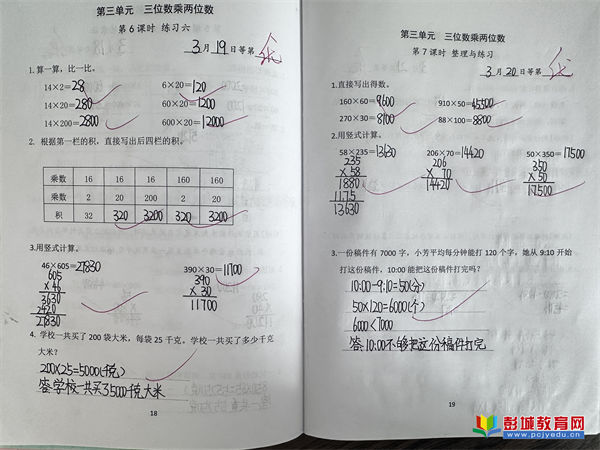 第三单元 三位数乘两位数
第 6 课时 练习六
3 月 19 日等第
1.算一算，比一比。
14×2=28 6×20=120
14×20=280 60×20=1200
14×200=2800 600×20=12000
2. 根据第一栏的积，直接写出后四栏的积。
乘数 16 16 160 160 160
乘数 2 20 200 2 20
积 32 320 3200 320 3200
3.用竖式计算。
46×605=27830 390×30=11700
605 390
×46 ×30
3630 11700
2420
27830
4. 学校一共买了 200 袋大米，每袋 25 千克。学校一共买了多少千克
大米？
200×25=5000(千克)
答:学校一共买了5000千克大米
18
第三单元 三位数乘两位数
第 7 课时 整理与练习
3 月 20 日等第
1.直接写出得数。
160×60=9600 910×50=45500
270×30=8100 88×100=8800
2.用竖式计算。
58×235=13630 206×70=14420 50×350=17500
235 206 350
×58 ×70 ×50
1880 14420 17500
1175
13630
3.一份稿件有 7000 字，小芳平均每分钟能打 120 个字，她从 9:10 开始
打这份稿件，10:00 能把这份稿件打完吗？
10:00-9:10=50(分)
50×120=6000(个)
6000<7000
答:10:00不够把这份稿件打完
19
彭城教育网
www.pcjyedu.cn